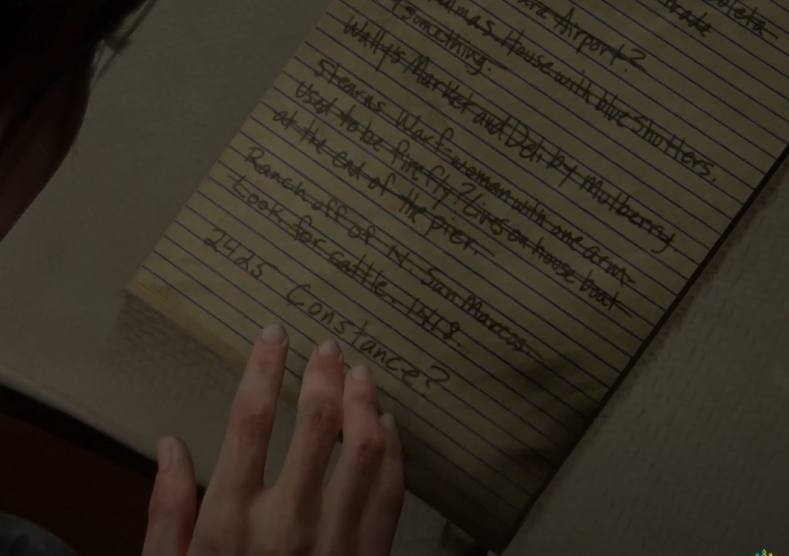 oleta
ara Airport? rade
almas. House with blue shutters.
something.
Wally's Market and Deli by Mulberry
Stearns Warf-woman with one arm.
Used to be firefly? Lives on house boat
at the end of the pier.
Ranch off of N. San Marcos.
Look for cattle. 1418.
2425 Constance?